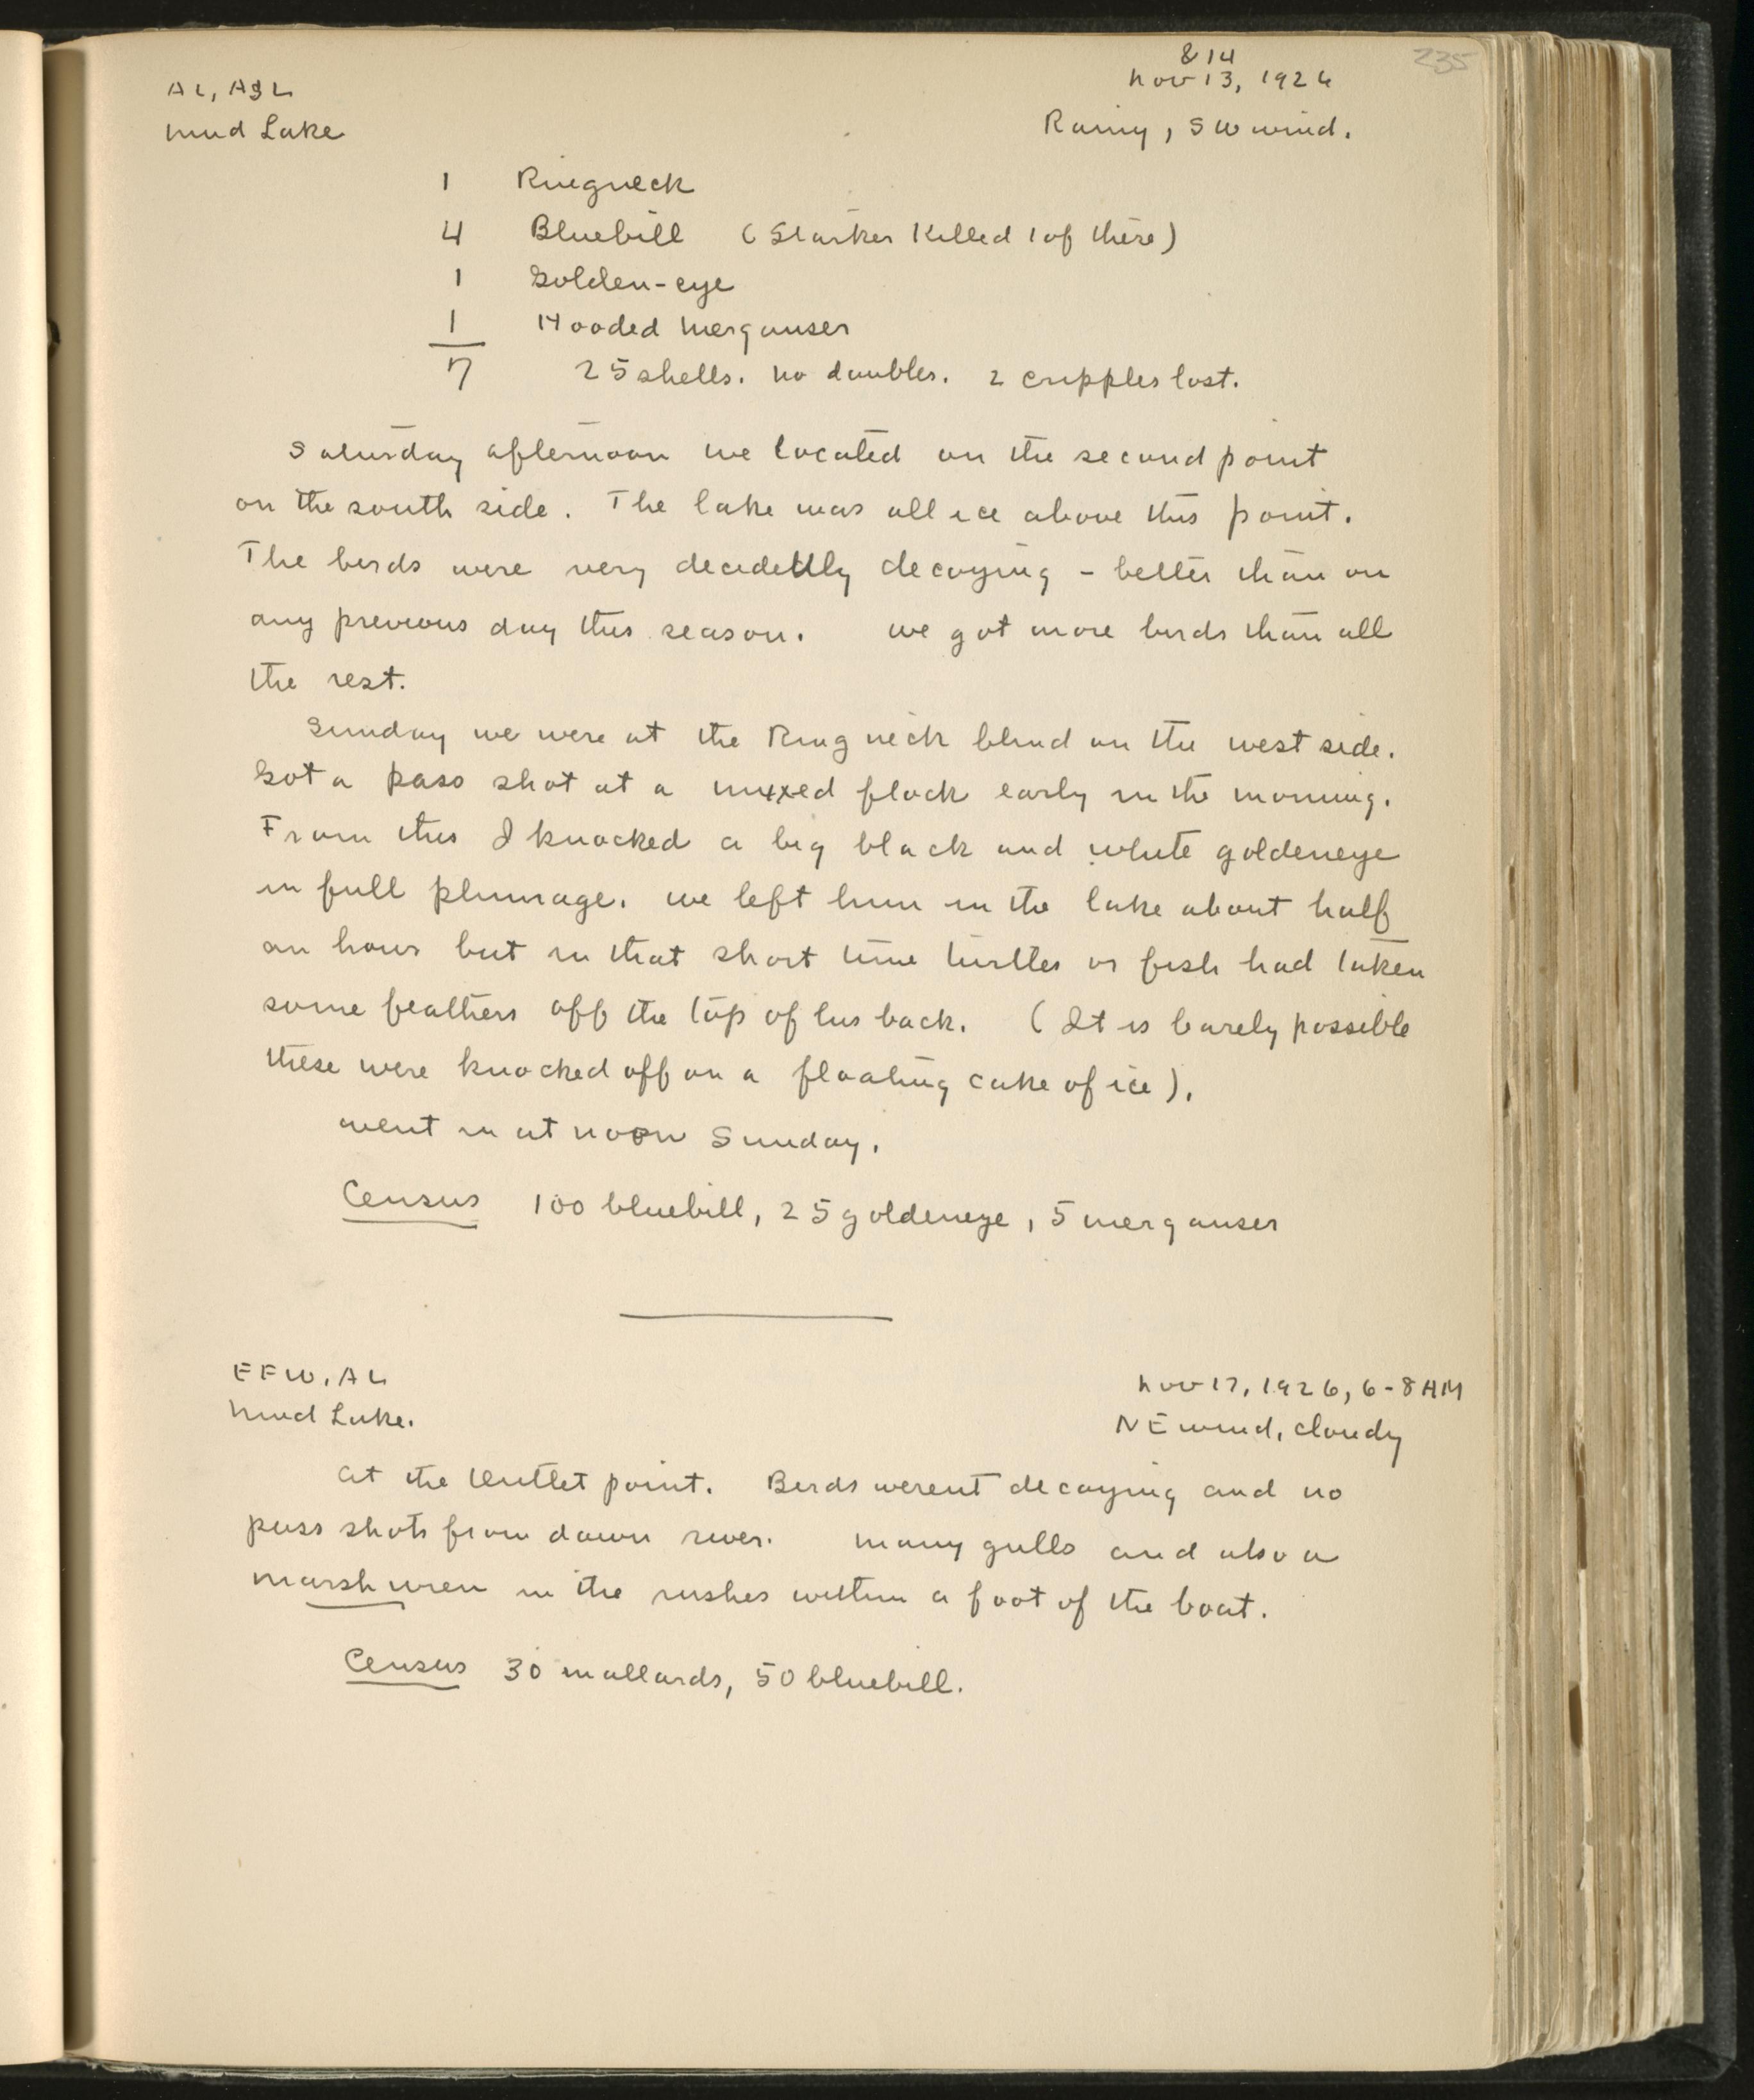 235
& 14
AL, ASL Nov 13, 1926
Mud Lake Rainy, SW wind.
1 Ringneck
4 Bluebill (Starker killed 1 of these)
1 Golden-eye
1 Hooded Merganser
7 25 shells. No doubles. 2 cripples lost.
Saturday afternoon we located on the second point
on the south side. The lake was all ice above this point.
The birds were very decidedly decoying - better than on
any previous day this season. We got more birds than all
the rest.
Sunday we were at the Ring neck blind on the west side.
Got a pass shot at a mixed flock early in the morning.
From this I knocked a big black and white goldeneye
in full plumage. We left him in the lake about half
an hour but in that short time turtles or fish had taken
some feathers off the top of his back. (It is barely possible
these were knocked off on a floating cake of ice).
Went in at noon Sunday.
Census 100 bluebill, 25 goldeneye, 5 merganser
EFW, AL Nov 17, 1926, 6-8 AM
Mud Lake. NE wind, cloudy
At the Outlet point. Birds werent decoying and no
pass shots from down river. Many gulls and also a
marsh wren in the rushes within a foot of the boat.
Census 30 mallards, 50 bluebill.